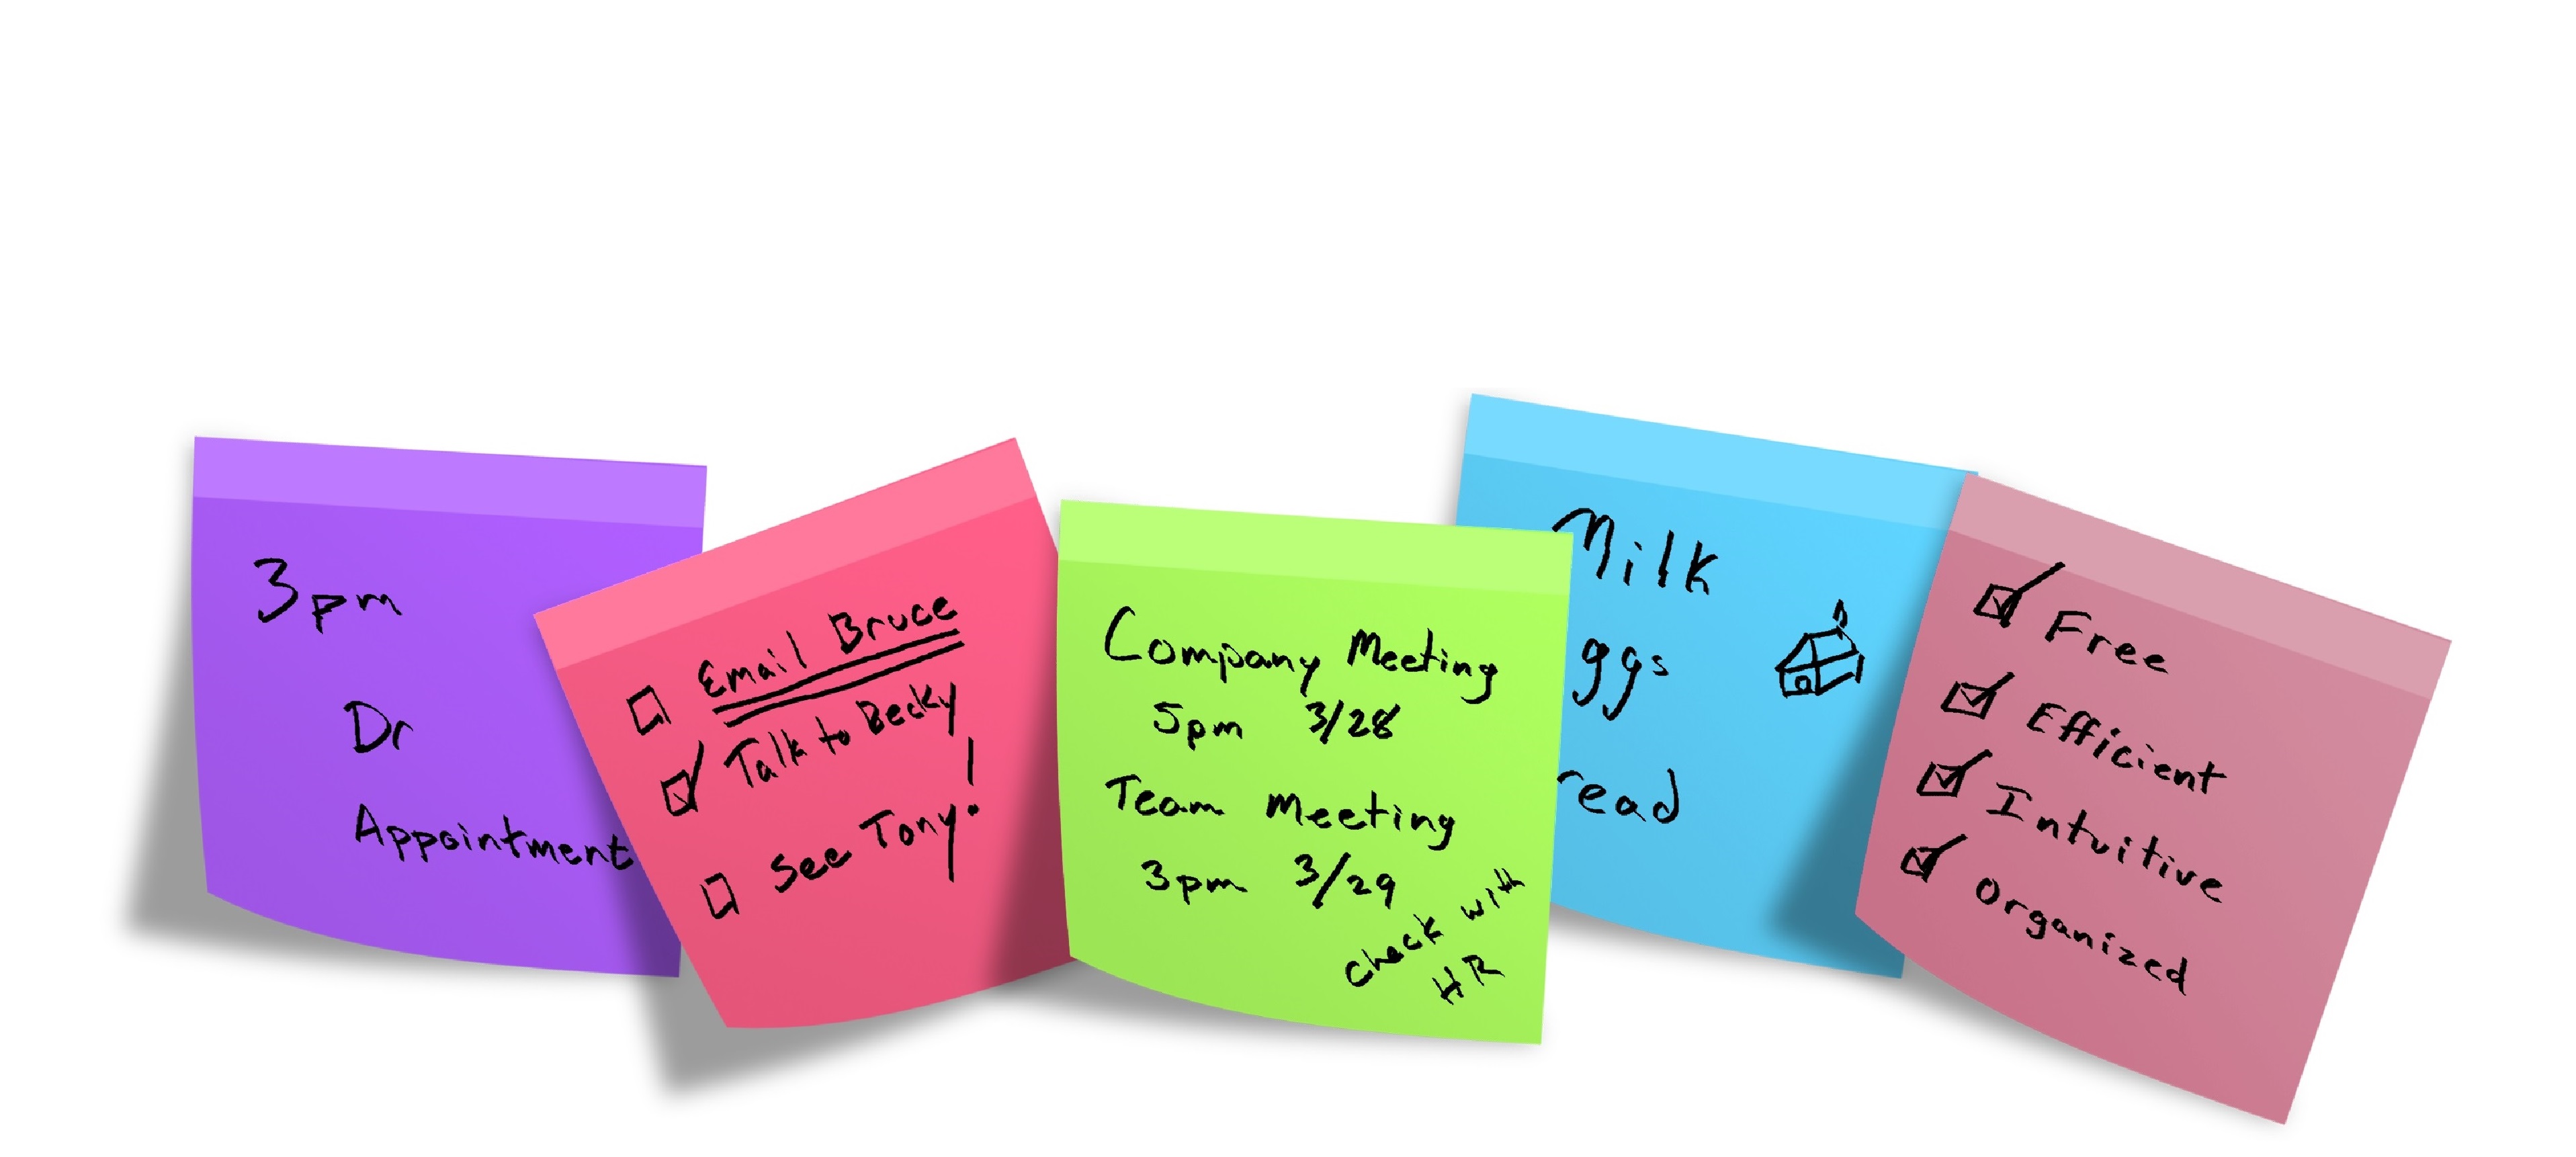 3pm
Dr
Appointment
Email Bruce
Talk to Becky
See Tony!
Company Meeting
5pm 3/28
Team Meeting
3pm 3/29
Check with
HR
Milk
ggs
read
Free
Efficient
Intuitive
Organized